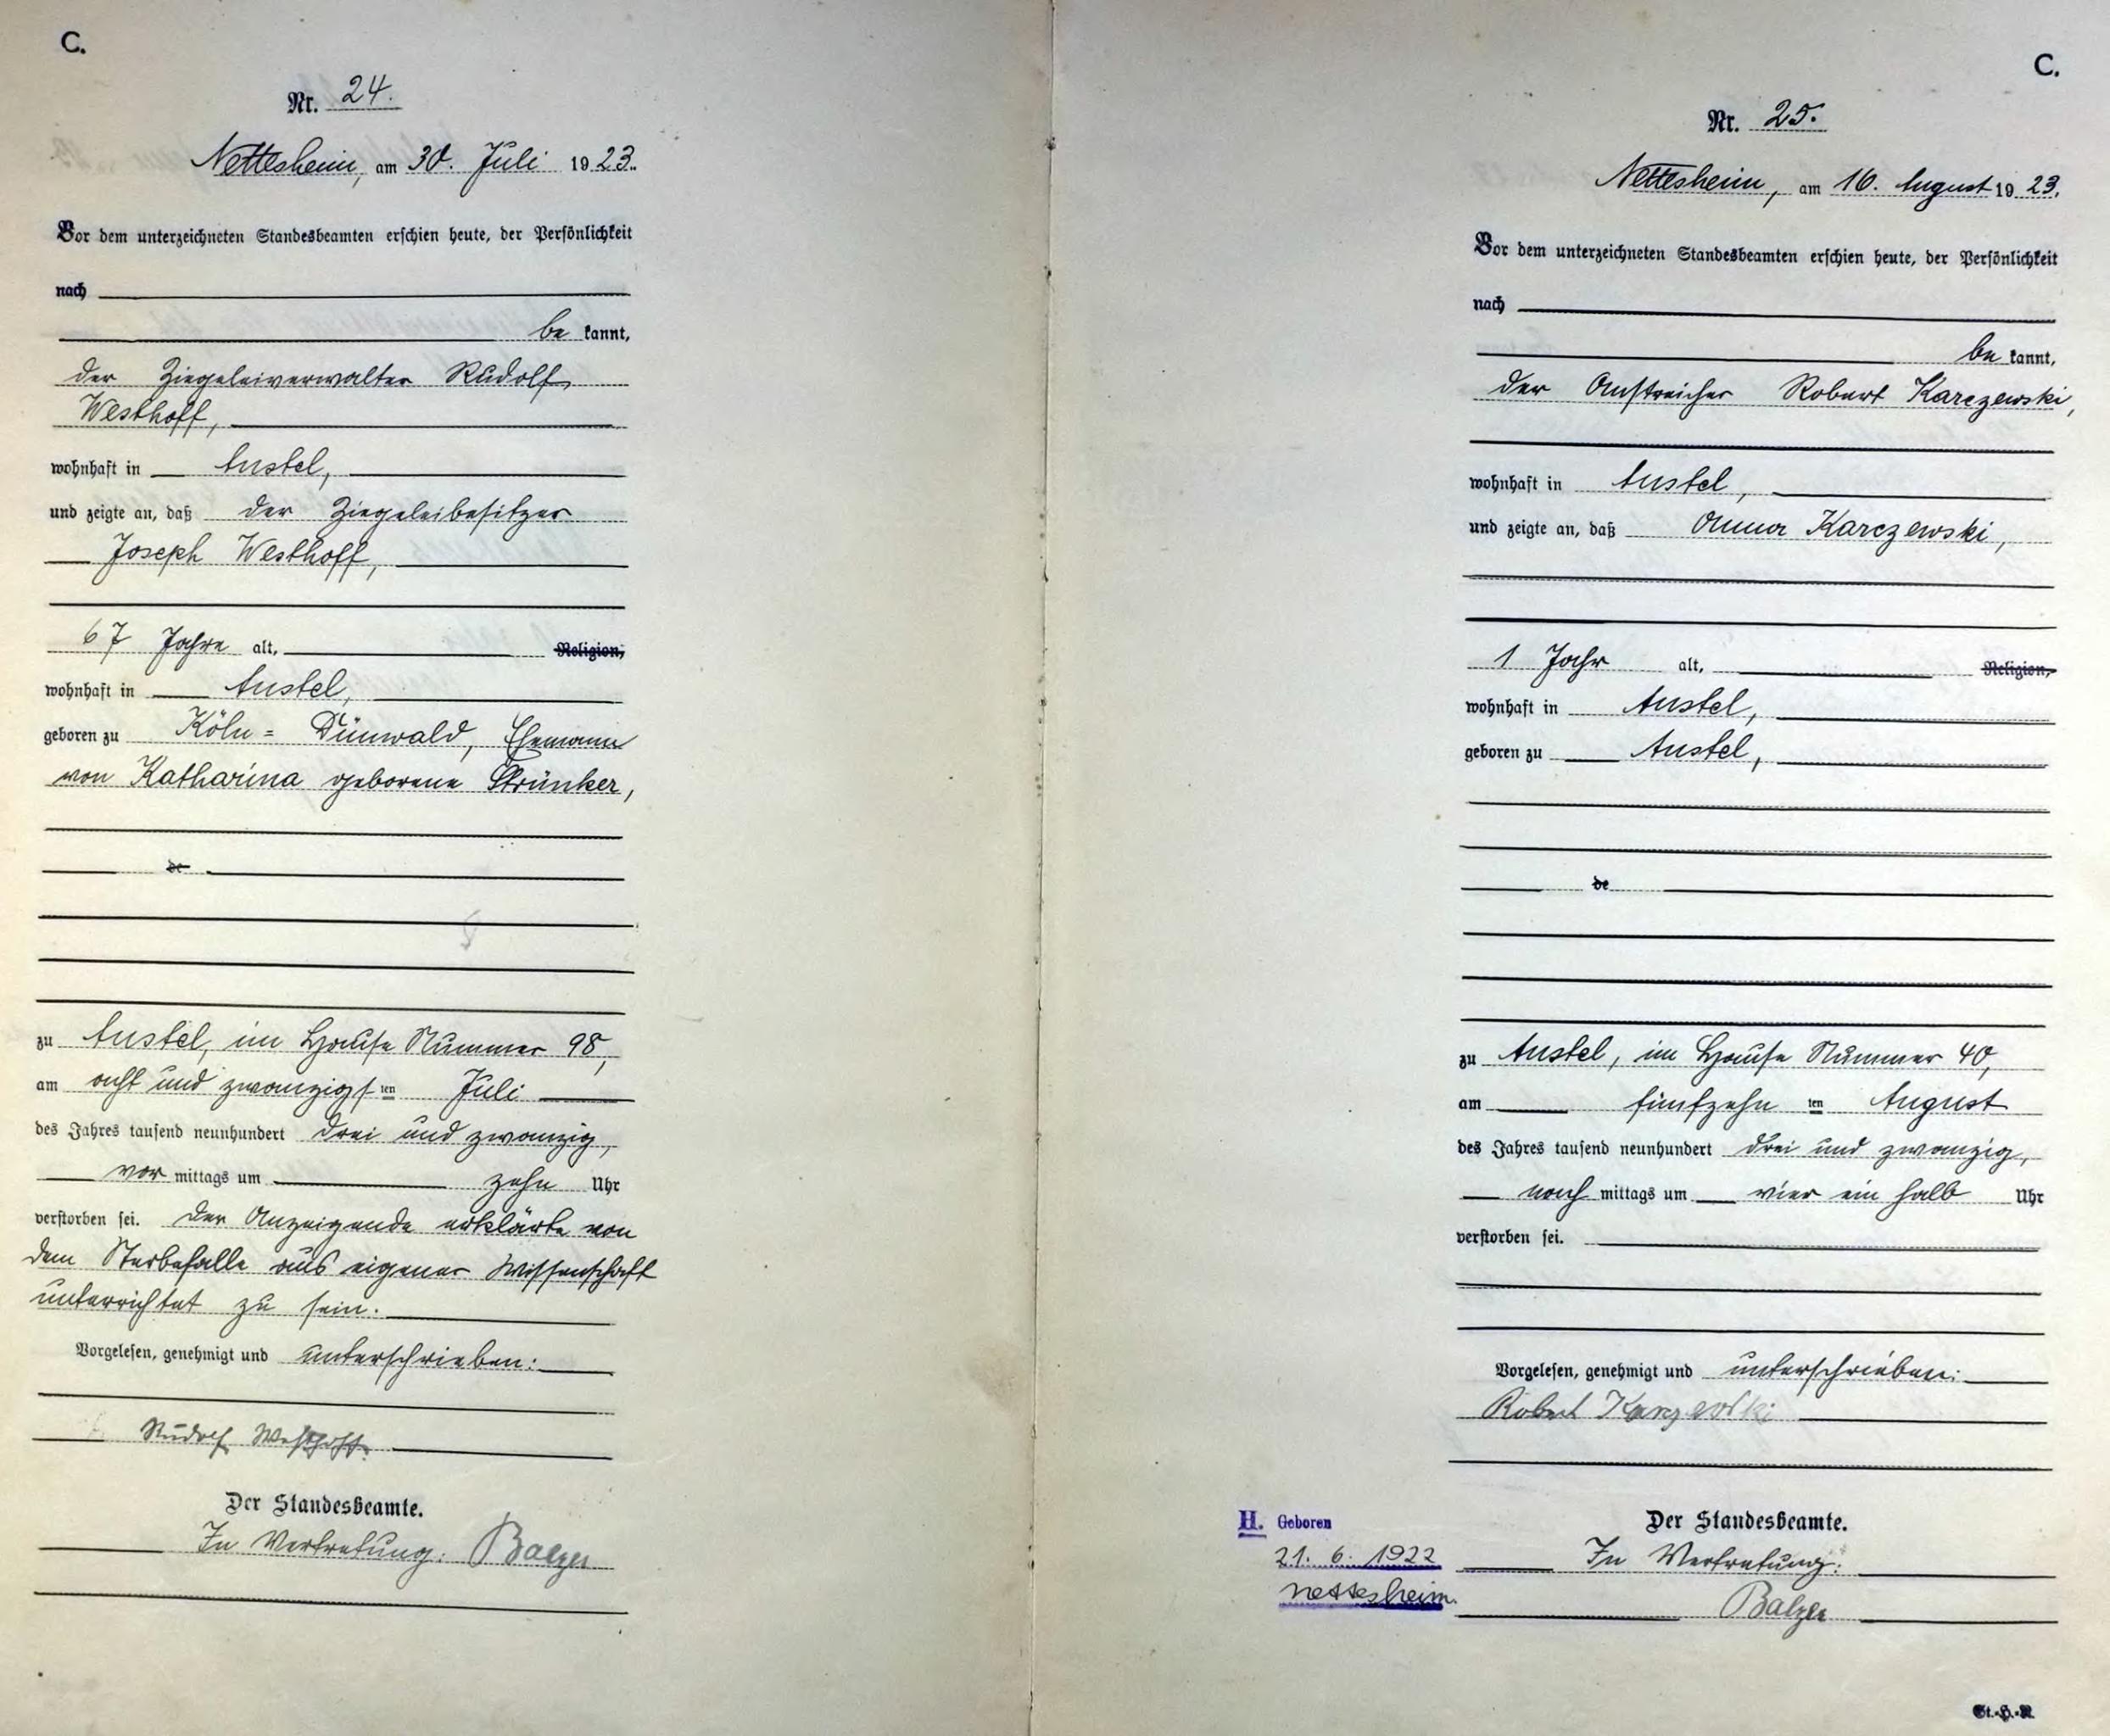 C.
Nr. 24.
Nettesheim, am 30. Juli 1923.
Vor dem unterzeichneten Standesbeamten erschien heute, der Persönlichkeit
nach
be kannt,
der Ziegeleiverwalter Rudolf
Westhoff,
wohnhaft in Anstel,
und zeigte an, daß der Ziegeleibesitzer
Joseph Westhoff,
67 Jahre alt, Religion,
wohnhaft in Anstel,
geboren zu Köln = Dünwald, Ehemann
von Katharina geborene Strünker,
de
zu Anstel, im Hause Nummer 98,
am acht und zwanzigsten Juli
des Jahres tausend neunhundert drei und zwanzig,
vor mittags um zehn Uhr
verstorben sei. Der Anzeigende erklärte von
dem Sterbefalle aus eigener Wissenschaft
unterrichtet zu sein.
Vorgelesen, genehmigt und unterschrieben:
Rudolf Westhoff.
Der Standesbeamte.
In Vertretung: Balzer
C.
Nr. 25.
Nettesheim, am 16. August 1923.
Vor dem unterzeichneten Standesbeamten erschien heute, der Persönlichkeit
nach
be kannt,
der Anstreicher Robert Karczewski,
wohnhaft in Anstel,
und zeigte an, daß Anna Karczewski,
1 Jahr alt, Religion,
wohnhaft in Anstel,
geboren zu Anstel,
de
zu Anstel, im Hause Nummer 40,
am fünfzehn ten August
des Jahres tausend neunhundert drei und zwanzig,
nach mittags um vier ein halb Uhr
verstorben sei.
Vorgelesen, genehmigt und unterschrieben:
Robert Karczewski
Der Standesbeamte.
In Vertretung:
Balzer
H. Geboren
21. 6. 1922
Nettesheim.
St.-H.-R.